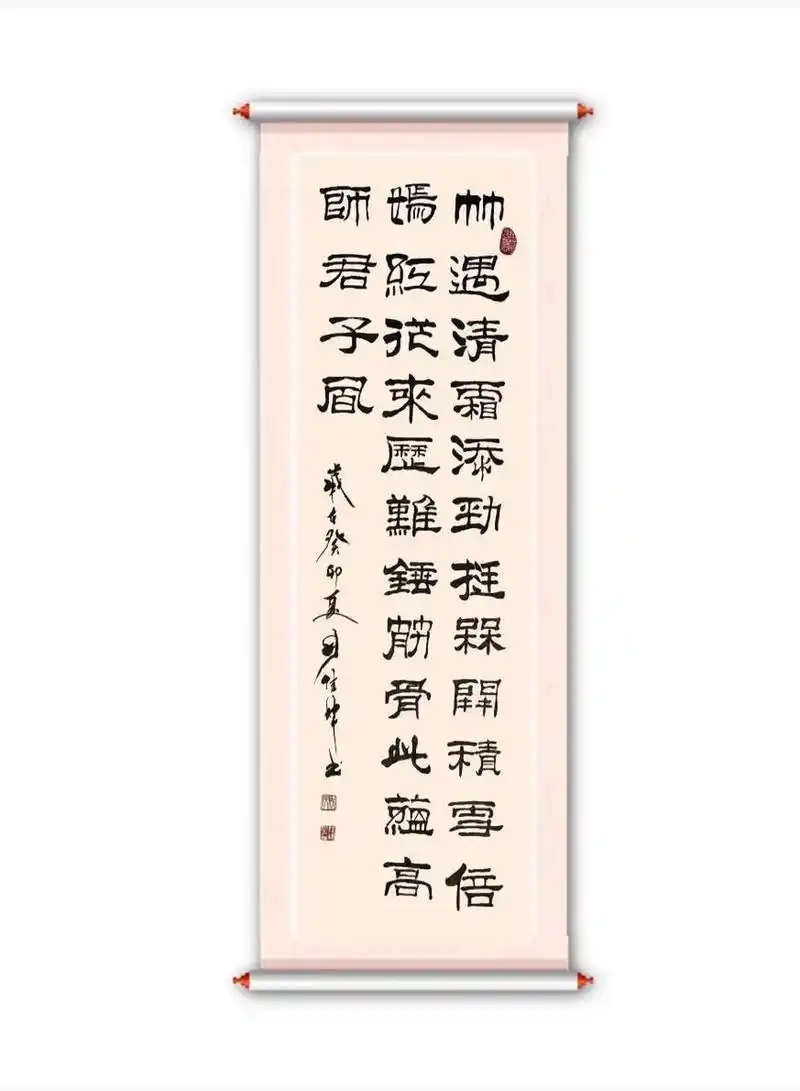 竹遇清霜添勁挺槑開積雪倍
嫣紅從來歷難錘筋骨此蘊高
師君子風
歲在癸卯夏書